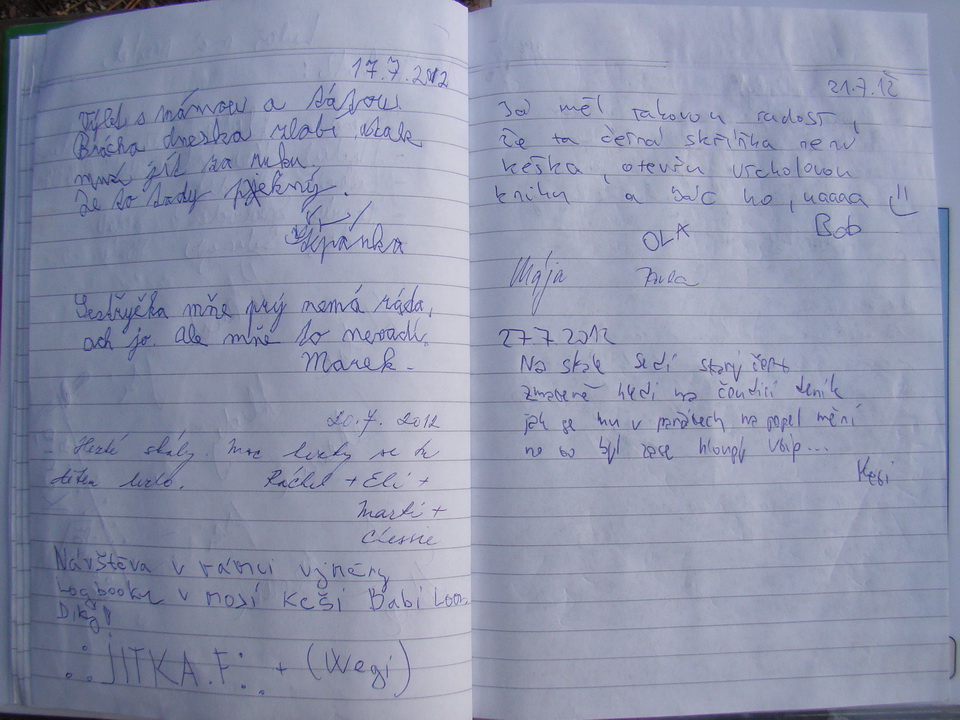 17.7.2012
Výlet s mámou a tátou.
Brácha dneska zlobí, však
musí jít za ruku.
Je to tady pjekný.
Štěpánka
Sestřyčka mňe prý nemá ráda,
och jo. Ale mňe to nevadí.
Marek.
20.7. 2012
Hezké skály. Moc hezky se tu
dětem lezlo. Ráchel + Eli +
Marti +
Chessie
Návštěva v rámci výměny
Logbooku v mojí keši Babí Lom.
Díky!
JITKA.F. + (Wegi)
21.7.12
Já měl takovou radost,
že ta černá skříňka není
keška, otevřu vrcholovou
knihu a już ho, uaaaa
Bob
OLA
Mája
27.7.2012
Na skále sedí starý čert
zmateně hledí na čoudící deník
jak se mu v pařátech na popel mění
no to byl zase hloupý vtip...